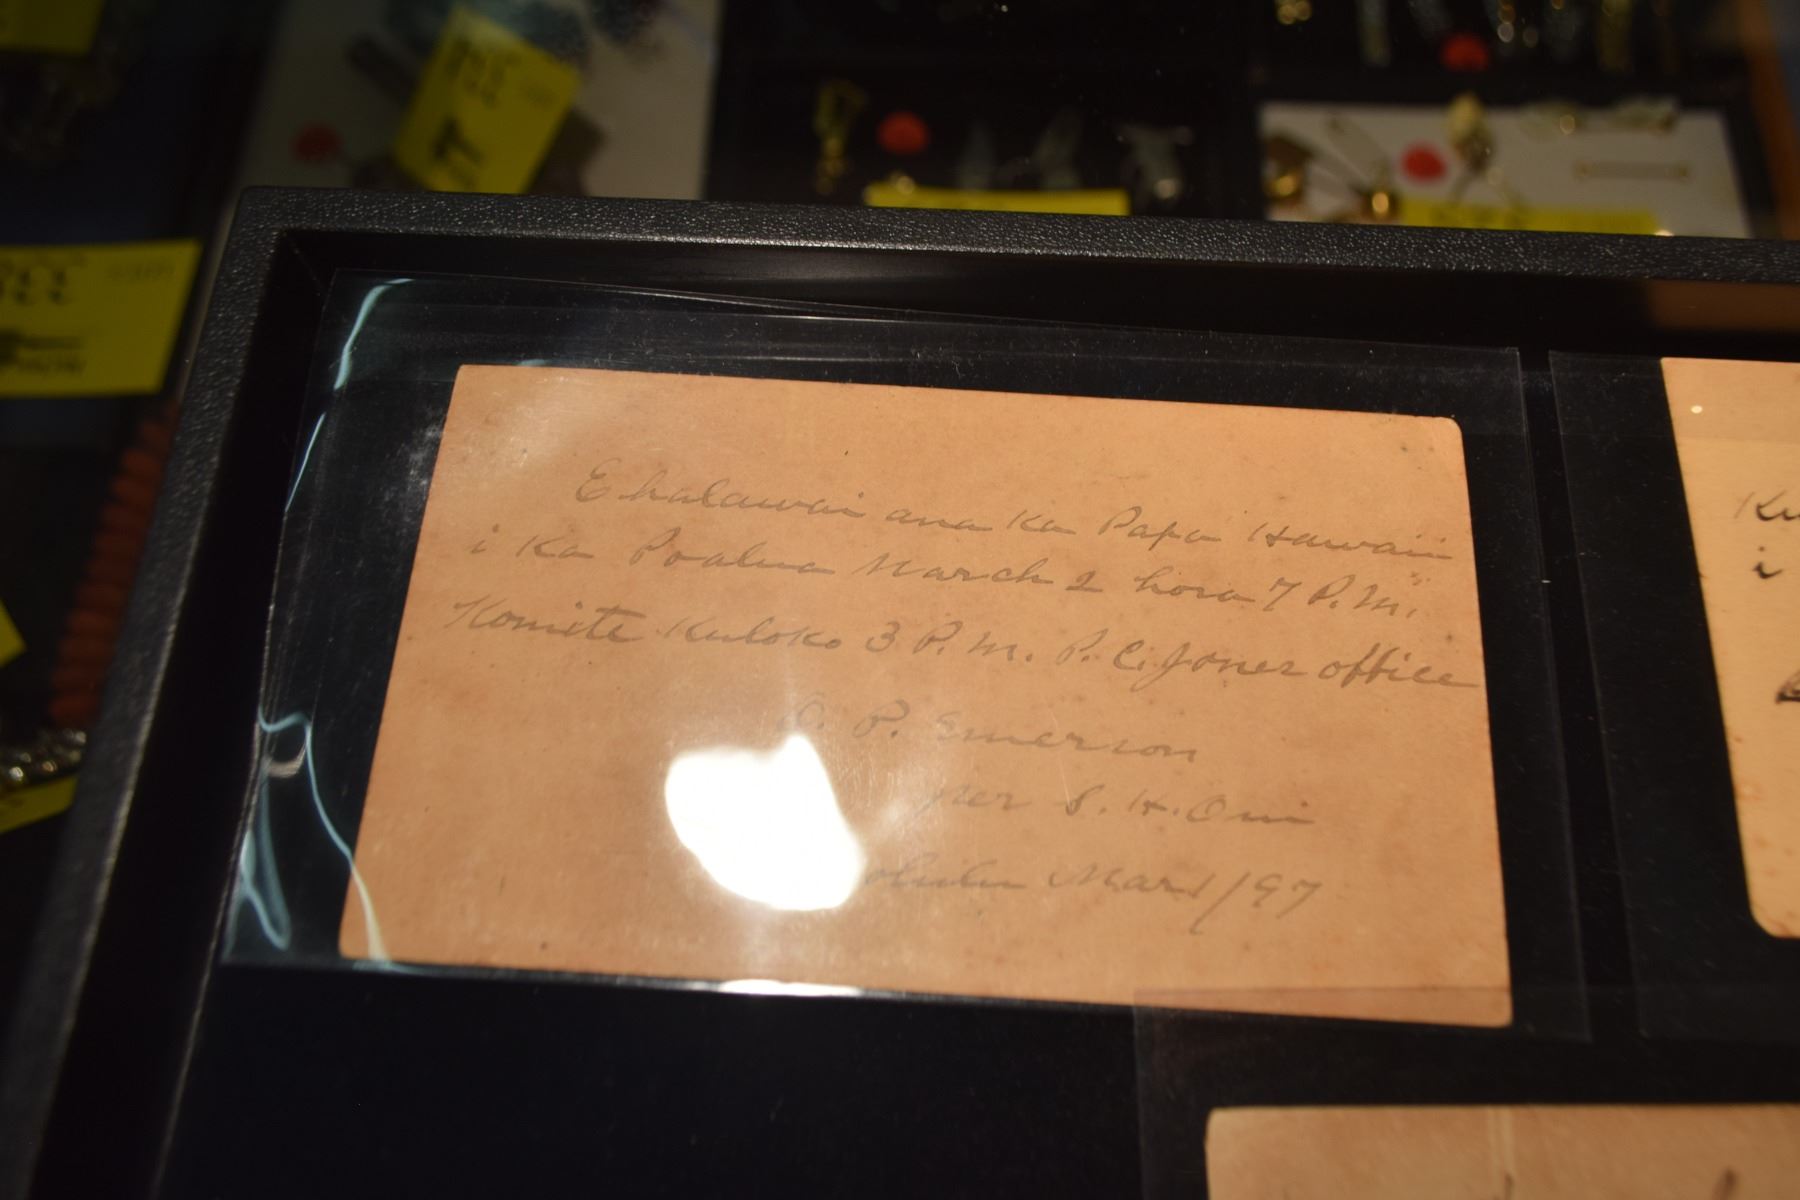 E halawai ana ka Papa Hawaii
i ka Poalua March 2 hora 7 P.M.
Komite Kuloko 3 P.M. P. C. Jones office
O. P. Emerson
per S. H. Oni
Mar 1/97
Ku
i